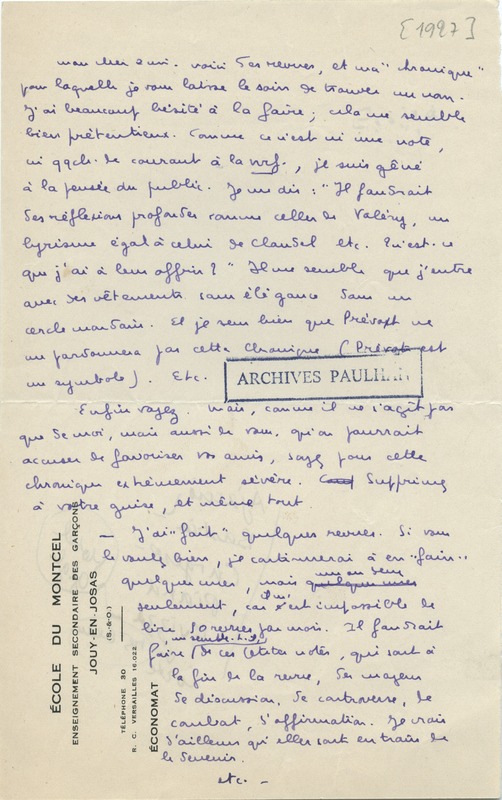 [1927]
mon cher ami. voici des revues, et ma "chronique"
pour laquelle je vous laisse le soin de trouver un nom.
J'ai beaucoup hésité à la faire ; cela me semble
bien prétentieux. Comme ce n'est ni une note,
ni qqch. de courant à la nrf., je suis gêné
à la pensée du public. Je me dis : "Il faudrait
des réflexions profondes comme celles de Valéry, un
lyrisme égal à celui de Claudel etc. Qu'est-ce
que j'ai à leur offrir ? " Il me semble que j'entre
avec des vêtements sans élégance dans un
cercle mondain. Et je sens bien que Prévost ne
me pardonnera pas cette chronique (Prévost est
un symbole). Etc.
ARCHIVES PAULHAN
Enfin voyez. Mais, comme il ne s'agit pas
que de moi, mais aussi de vous, qu'on pourrait
accuser de favoriser vos amis, soyez pour cette
chronique extrêmement sévère. Supprimez
à votre guise, et même tout
— J'ai "fait" quelques revues. Si vous
le voulez bien, je continuerai à en "faire"
quelques unes, mais une ou deux
seulement, car il m'est impossible de
lire 10 revues par mois. Il faudrait
me semble-t-il,
faire de ces petites notes, qui sont à
la fin de la revue, des moyens
de discussion, de controverse, de
combat, d'affirmation. Je crois
d'ailleurs qu'elles sont en train de
le devenir.
etc. —
ÉCOLE DU MONTCEL
ENSEIGNEMENT SECONDAIRE DES GARÇONS
JOUY-EN-JOSAS
(S.-&-O.)
TÉLÉPHONE 30
R. C. VERSAILLES 16.022
ÉCONOMAT